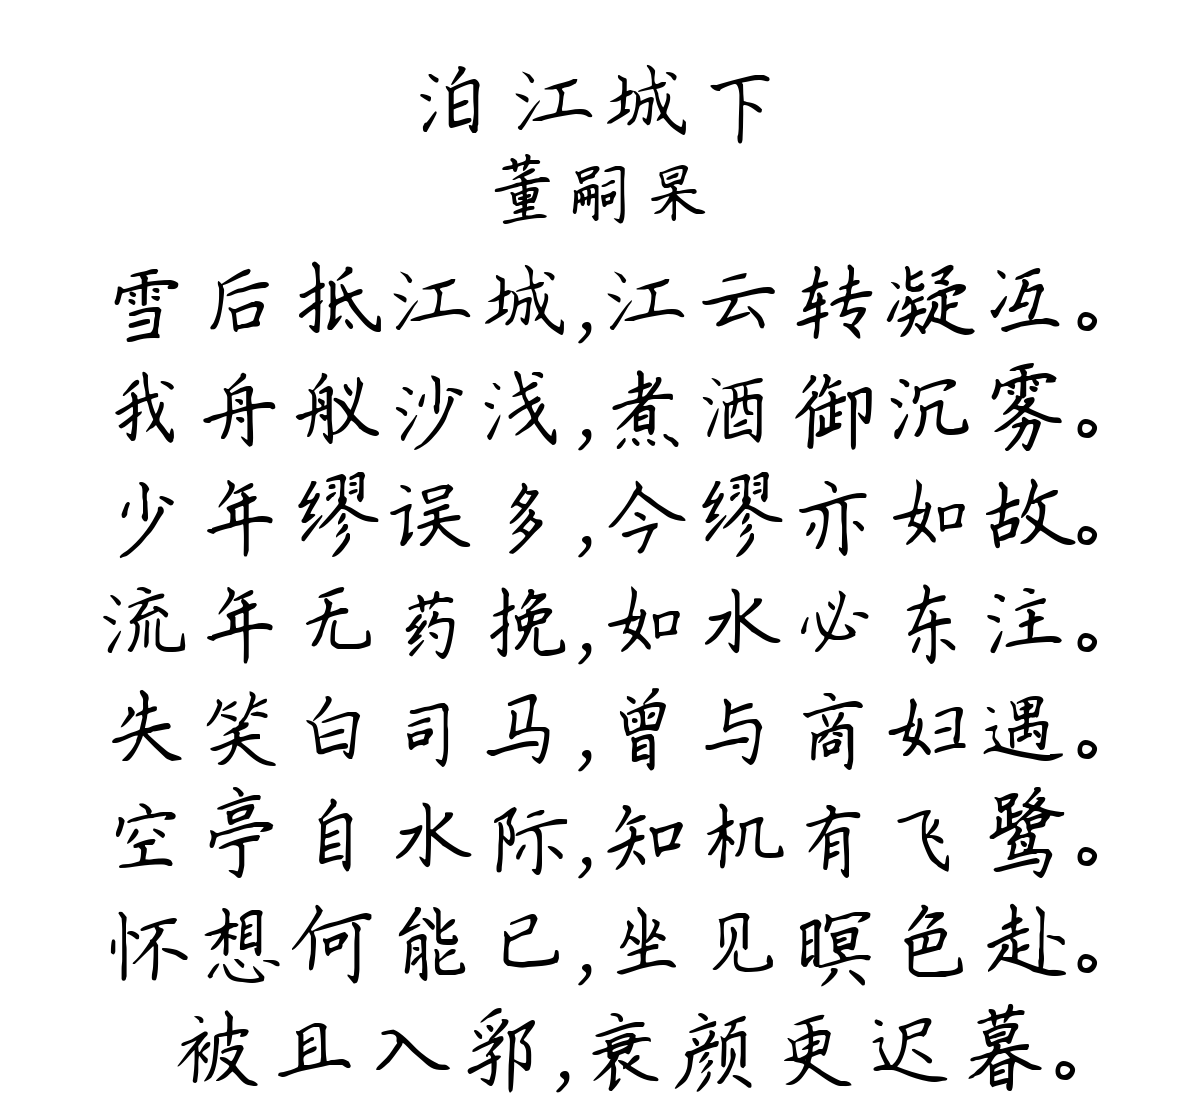 泊江城下
董嗣杲
雪后抵江城,江云转凝冱。
我舟舣沙浅,煮酒御沉雾。
少年缪误多,今缪亦如故。
流年无药挽,如水必东注。
失笑白司马,曾与商妇遇。
空亭自水际,知机有飞鹭。
怀想何能已,坐见暝色赴。
被且入郛,衰颜更迟暮。